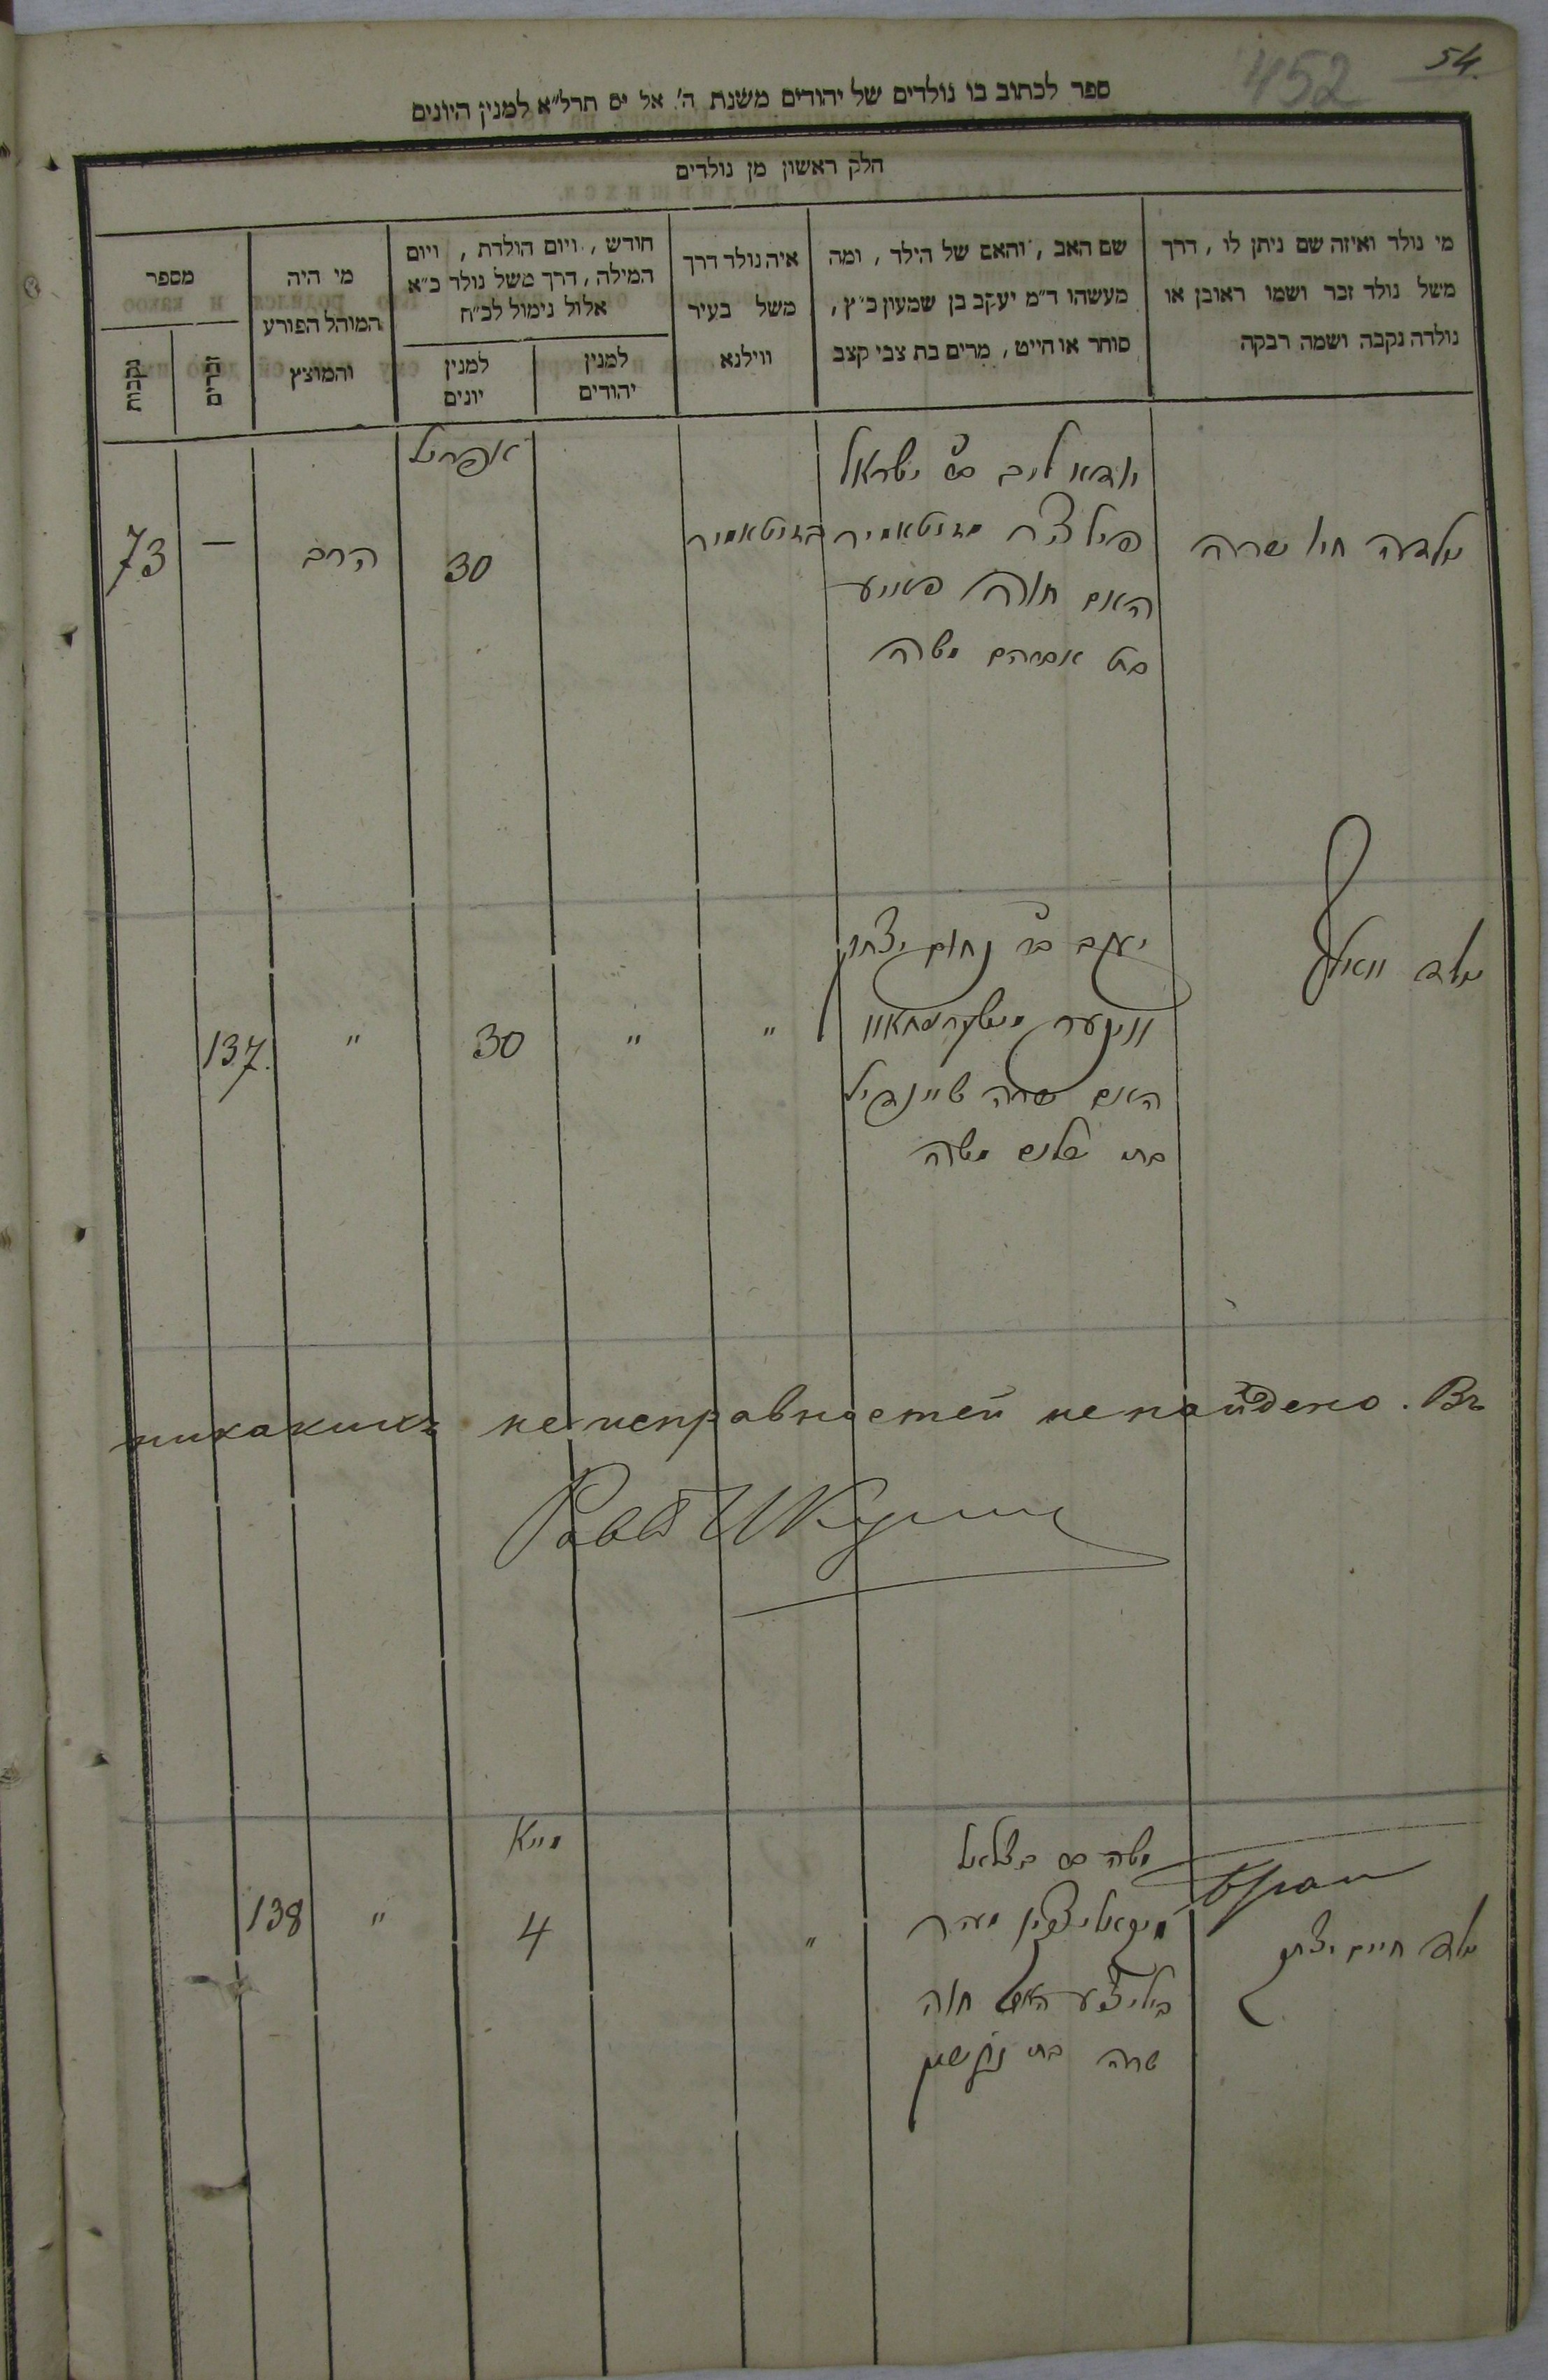 54.
452
ספר לכתוב בו נולדים של יהודים משנת ה' אל ים תרל״א למנין היונים
חלק ראשון מן נולדים
מי נולד ואיזה שם ניתן לו, דרך
משל נולד זכר ושמו ראובן או
נולדה נקבה ושמה רבקה
שם האב, והאם של הילד, ומה
מעשהו ד״מ יעקב בן שמעון כ״ץ,
סוחר או חייט, מרים בת צבי קצב
איה נולד דרך
משל בעיר
ווילנא
חודש, ויום הולדת, ויום
המילה, דרך משל נולד כ״א
אלול נימול לכ״ח
למנין
יהודים
למנין
יונים
מי היה
המוהל הפורע
והמוצץ
מספר
זכרים
נקבות
ילדה חיה שרה
יודא ליב בר ישראל
מזיטאמיר
האם חוה
בת אברהם משה
בזיטאמיר
אפריל
30
הרב
—
73
ילד וואלף
יעקב בר נחום יצחק
ווינער
האם שרה שיינדיל
בת שלום משה
"
"
30
"
137.
никакихъ неисправностей не найдено. Въ
ילד חיים יצחק
משה בר בצלאל
האם חוה
שרה בת
"
מייא
4
"
138